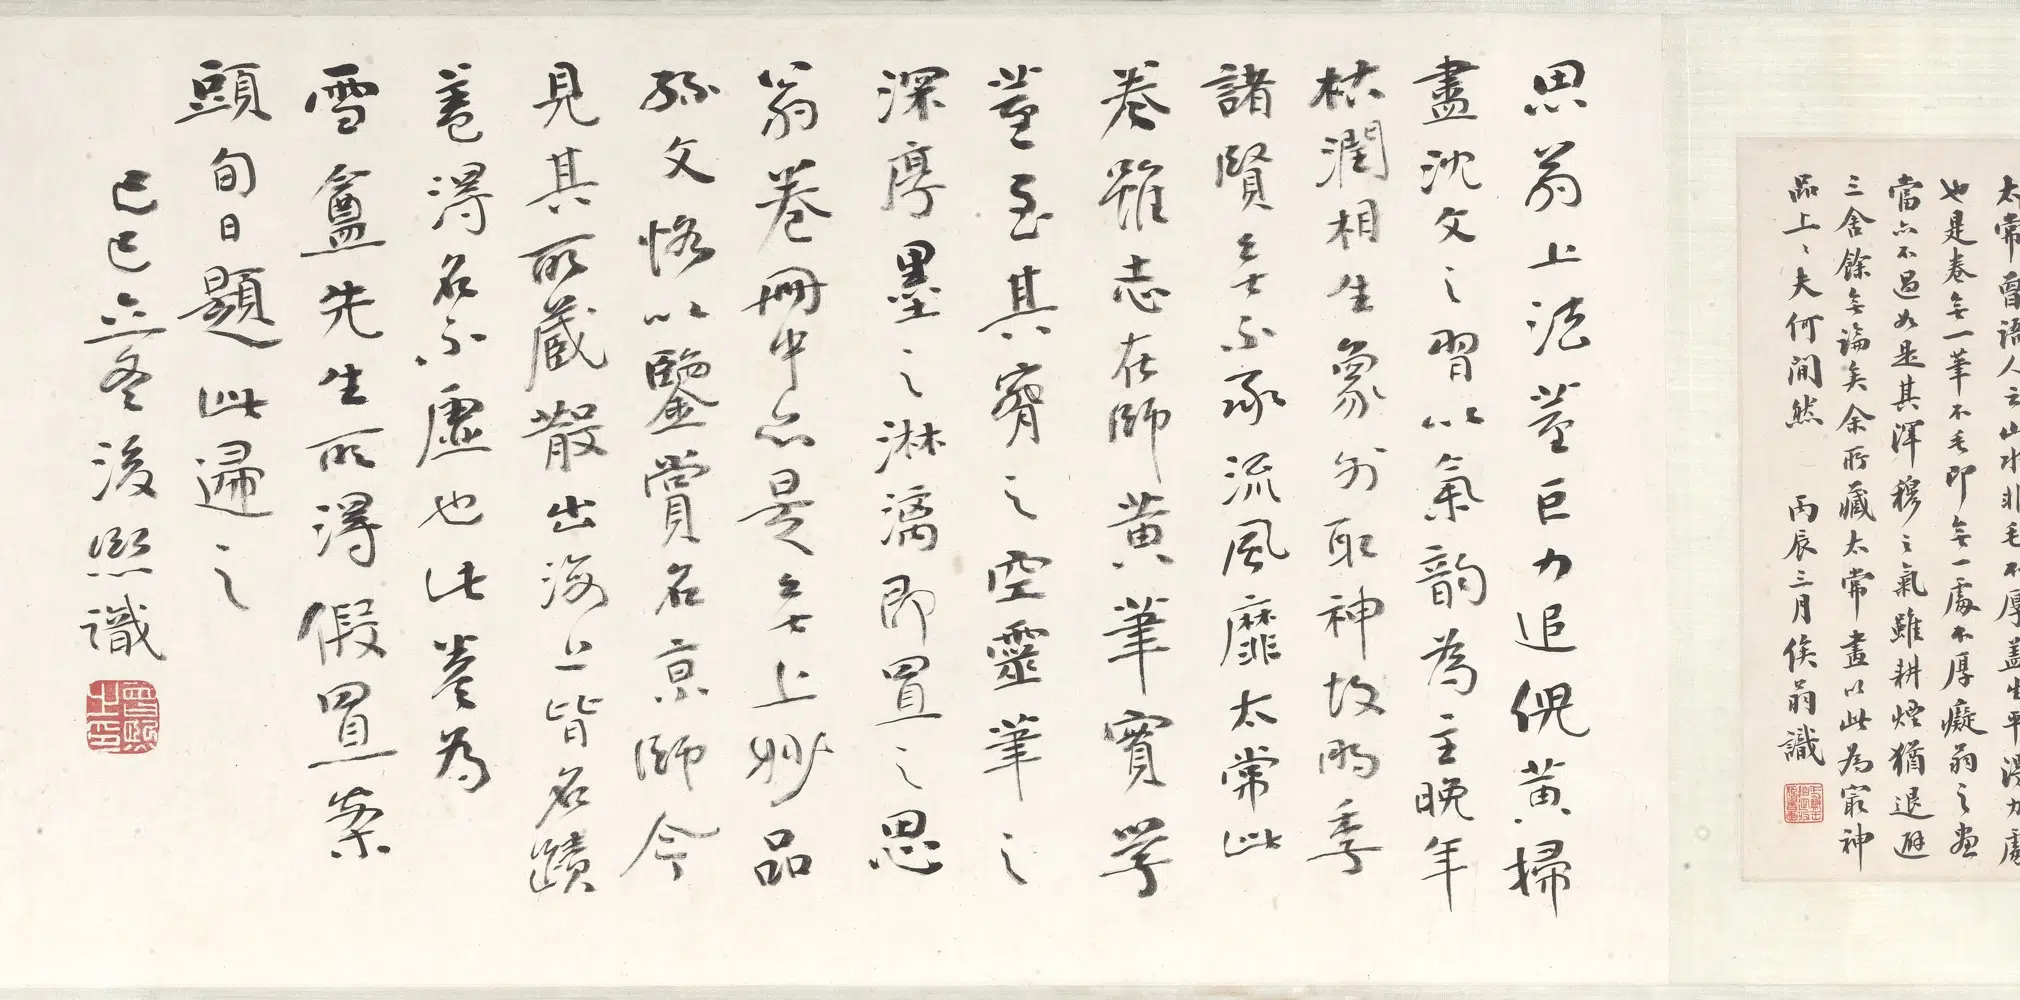 太常曾語人云山水非毛不厚蓋生平得力處
也是卷無一筆不毛即無一處不厚癡翁之畫
當亦不過如是其渾穆之氣雖耕煙猶退避
三舍餘無論矣余所藏太常畫以此為最神
品上〻夫何間然 丙辰三月俟翁識
思翁上法董巨力追倪黃掃
盡沈文之習以氣韵為主晚年
枯潤相生象外取神故明季
諸賢無不承流風靡太常此
卷雖志在師黃筆實學
董至其窅之空靈筆之
深厚墨之淋漓即置之思
翁卷冊中亦是無上妙品
孫文恪以鑒賞名京師今
見其所藏散出海上皆名蹟
蓋得名不虛也此卷為
雪盦先生所得假置案
頭旬日題此歸之
己巳立冬後熙識